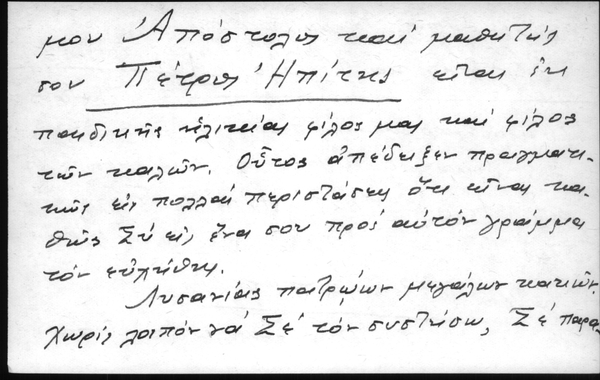 μου Ἀπόστολος καί μαθητής
σου Πέτρος Ἠπίτης εἶναι ἐκ
παιδικῆς ἡλικίας φίλος μας καί φίλος
τῶν καλῶν. Οὗτος ἀπέδειξεν πραγματι-
κῶς εἰς πολλάς περιστάσεις ὅτι εἶναι κα-
θώς Σύ εἰς ἕνα σου πρός αὐτόν γράμμα
τόν εὐχήθης.
Λυσανίας πατρῴων μεγάλων κακῶν.
Χωρίς λοιπόν νά Σέ τόν συστήσω, Σέ παρα-